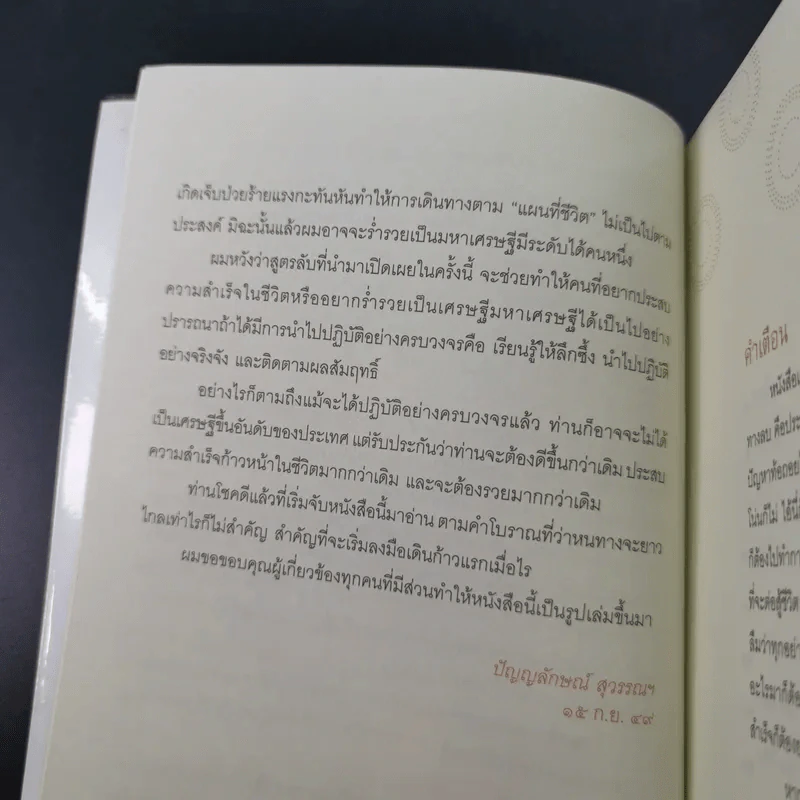 เกิดเจ็บป่วยร้ายแรงกะทันหันทำให้การเดินทางตาม “แผนที่ชีวิต” ไม่เป็นไปตาม
ประสงค์ มิฉะนั้นแล้วผมอาจจะร่ำรวยเป็นมหาเศรษฐีมีระดับได้คนหนึ่ง
ผมหวังว่าสูตรลับที่นำมาเปิดเผยในครั้งนี้ จะช่วยทำให้คนที่อยากประสบ
ความสำเร็จในชีวิตหรืออยากร่ำรวยเป็นเศรษฐีมหาเศรษฐีได้เป็นไปอย่าง
ปรารถนาถ้าได้มีการนำไปปฏิบัติอย่างครบวงจรคือ เรียนรู้ให้ลึกซึ้ง นำไปปฏิบัติ
อย่างจริงจัง และติดตามผลสัมฤทธิ์
อย่างไรก็ตามถึงแม้จะได้ปฏิบัติอย่างครบวงจรแล้ว ท่านก็อาจจะไม่ได้
เป็นเศรษฐีขึ้นอันดับของประเทศ แต่รับประกันว่าท่านจะต้องดีขึ้นกว่าเดิม ประสบ
ความสำเร็จก้าวหน้าในชีวิตมากกว่าเดิม และจะต้องรวยมากกว่าเดิม
ท่านโชคดีแล้วที่เริ่มจับหนังสือนี้มาอ่าน ตามคำโบราณที่ว่าหนทางจะยาว
ไกลเท่าไรก็ไม่สำคัญ สำคัญที่จะเริ่มลงมือเดินก้าวแรกเมื่อไร
ผมขอขอบคุณผู้เกี่ยวข้องทุกคนที่มีส่วนทำให้หนังสือนี้เป็นรูปเล่มขึ้นมา
ปัญญลักษณ์ สุวรรณฯ
๑๕ ก.ย. ๔๙
คำเตือน
หนังสือเ
ทางลบ คือประ
ปัญหาท้อถอย
โน่นก็ไม่ ไอ้นี่
ก็ต้องไปทำกา
ที่จะต่อสู้ชีวิต
ลืมว่าทุกอย่า
อะไรมาก็ต้อ
สำเร็จก็ต้อง